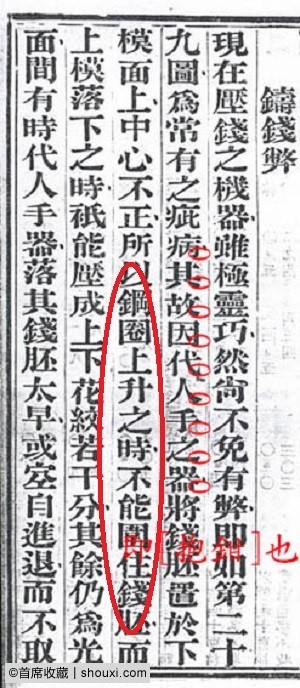 鑄錢弊
現在壓錢之機器雖極靈巧然尚不免有弊即如第二十
九圖爲常有之疵病其故因代人手之器將錢胚置於下
模面上中心不正所以鋼圈上升之時不能圍住錢胚而
上模落下之時祇能壓成上下花絞若干分其餘仍爲光
面間有時代人手器落其錢胚太早或空自進退而不取
即[抱鉗]也
©首席收藏 | shouxi.com